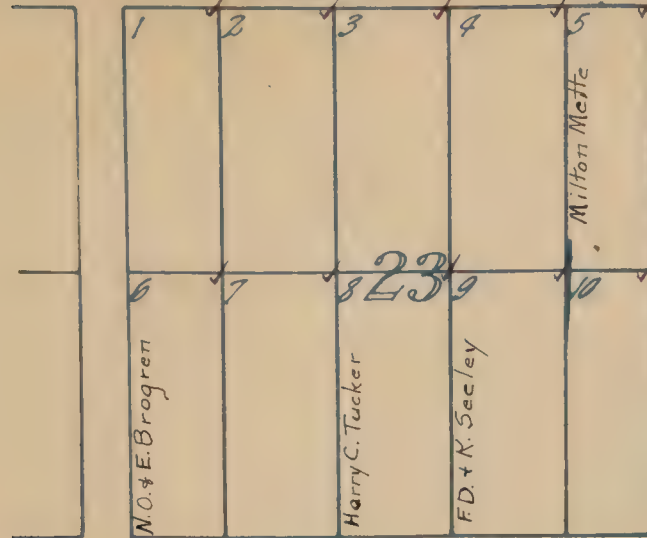 1
2
3
4
5
Milton Mette
23
6
7
8
9
10
N.O. & E. Brogren
Harry C. Tucker
F.D. + K. Seeley